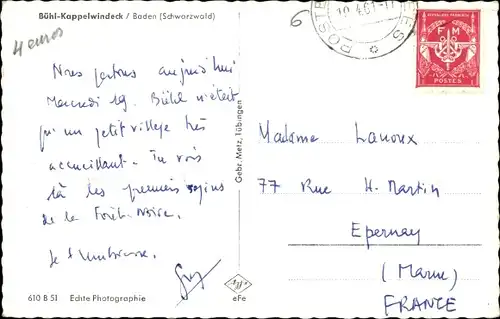 Bühl-Kappelwindeck / Baden (Schwarzwald)
4 euros
6
Nous partons aujourd'hui
Mercredi 19. Bühl n'était
qu'un petit village très
accueillant. Tu vois
là les premiers sapins
de la Forêt-Noire.
Je t'embrasse.
610 B 51 Echte Photographie
Gebr. Metz, Tübingen
eFe
POSTE
19.4.61
F M
POSTES
Madame Lanoux
77 Rue H. Martin
Epernay
(Marne)
FRANCE